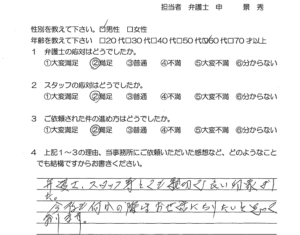 担当者 弁護士 申 景 秀
性別を教えて下さい。☑男性 □女性
年齢を教えて下さい□20代□30代□40代□50代☑60代□70才以上
1 弁護士の応対はどうでしたか。
①大変満足 ②満足 ③普通 ④不満 ⑤大変不満 ⑥分からない
2 スタッフの応対はどうでしたか。
①大変満足 ②満足 ③普通 ④不満 ⑤大変不満 ⑥分からない
3 ご依頼された件の進め方はどうでしたか。
①大変満足 ②満足 ③普通 ④不満 ⑤大変不満 ⑥分からない
4 上記1～3の理由、当事務所にご依頼いただいた感想など、どのようなこと
でも結構ですからお書きください。
弁護士、スタッフ等とても親切で良い印象でし
た。
今後も何かの際はお世話になりたいと思って
おります。